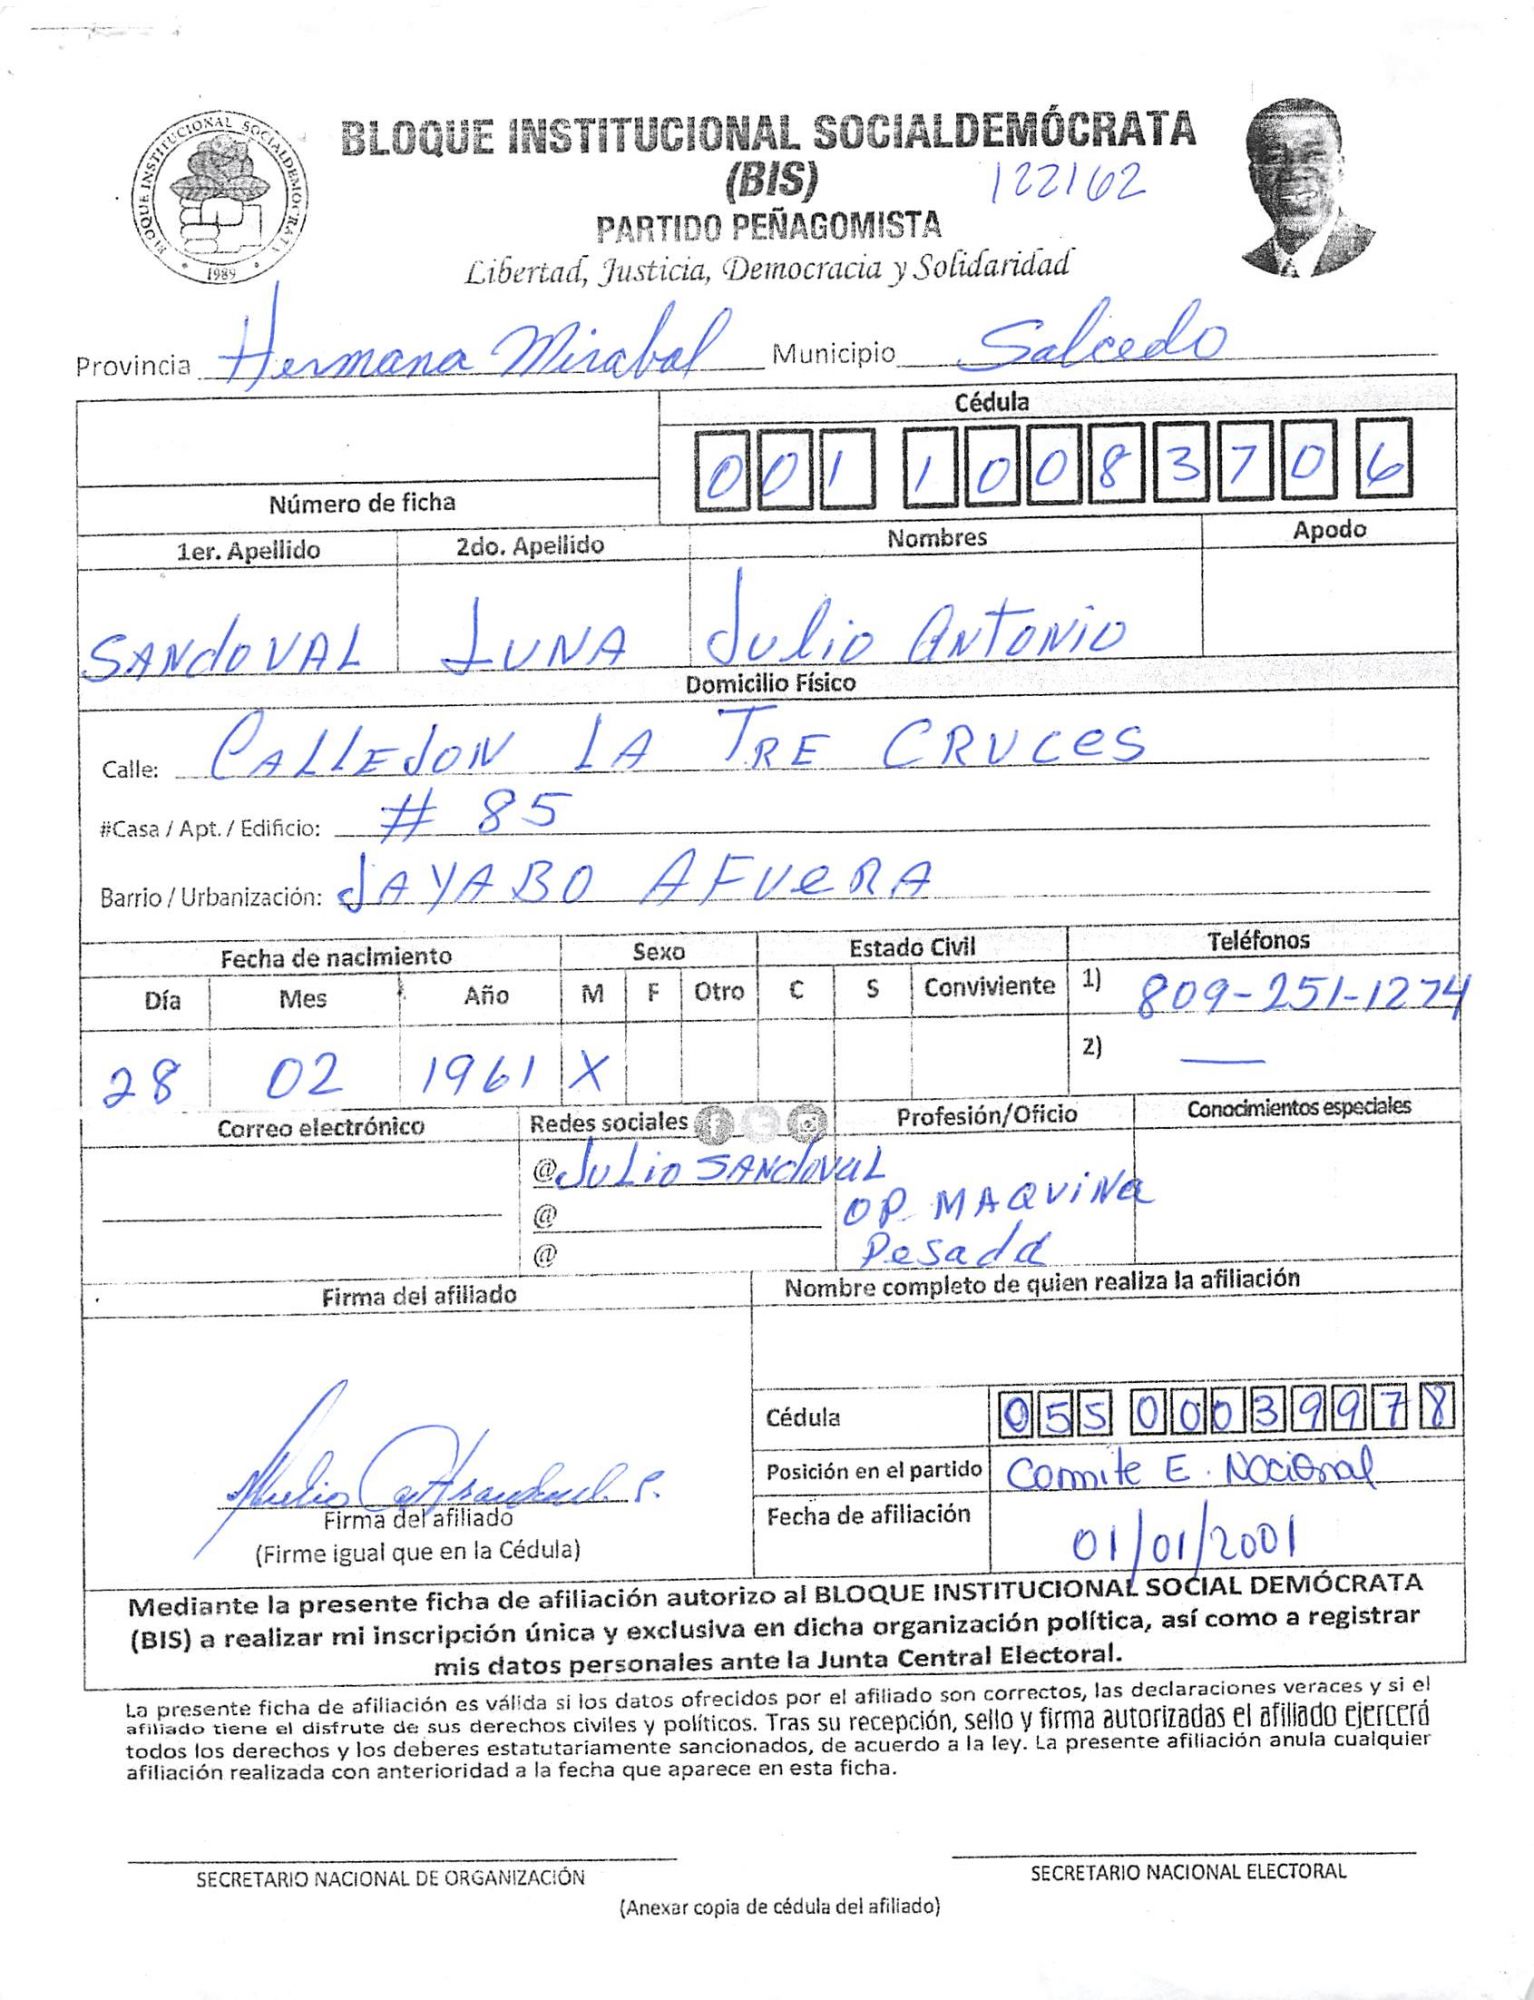 BLOQUE INSTITUCIONAL SOCIALDEMOCRATA
1989
BLOQUE INSTITUCIONAL SOCIALDEMÓCRATA
(BIS) 122162
PARTIDO PEÑAGOMISTA
Libertad, Justicia, Democracia y Solidaridad
Provincia Hermana Mirabal Municipio Salcedo
Cédula
001 1008370 6
Número de ficha
1er. Apellido 2do. Apellido Nombres Apodo
SANdOVAL LUNA Julio ANTONIO
Domicilio Físico
Calle: CALLEJON LA TRE CRUCES
#Casa / Apt. / Edificio: # 85
Barrio / Urbanización: JAYABO AFUERA
Fecha de nacimiento Sexo Estado Civil Teléfonos
Día Mes Año M F Otro C S Conviviente 1) 809-251-1274
2) —
28 02 1961 X
Correo electrónico Redes sociales Profesión/Oficio Conocimientos especiales
@JULio SANdoVAL
@ OP MAQUiNa
@ Pesada
Firma del afiliado Nombre completo de quien realiza la afiliación
Cédula 055 0003997 8
Posición en el partido Comite E. Nacional
Firma del afiliado
(Firme igual que en la Cédula)
Fecha de afiliación 01/01/2001
Mediante la presente ficha de afiliación autorizo al BLOQUE INSTITUCIONAL SOCIAL DEMÓCRATA
(BIS) a realizar mi inscripción única y exclusiva en dicha organización política, así como a registrar
mis datos personales ante la Junta Central Electoral.
La presente ficha de afiliación es válida si los datos ofrecidos por el afiliado son correctos, las declaraciones veraces y si el
afiliado tiene el disfrute de sus derechos civiles y políticos. Tras su recepción, sello y firma autorizadas el afiliado ejercerá
todos los derechos y los deberes estatutariamente sancionados, de acuerdo a la ley. La presente afiliación anula cualquier
afiliación realizada con anterioridad a la fecha que aparece en esta ficha.
SECRETARIO NACIONAL DE ORGANIZACIÓN SECRETARIO NACIONAL ELECTORAL
(Anexar copia de cédula del afiliado)